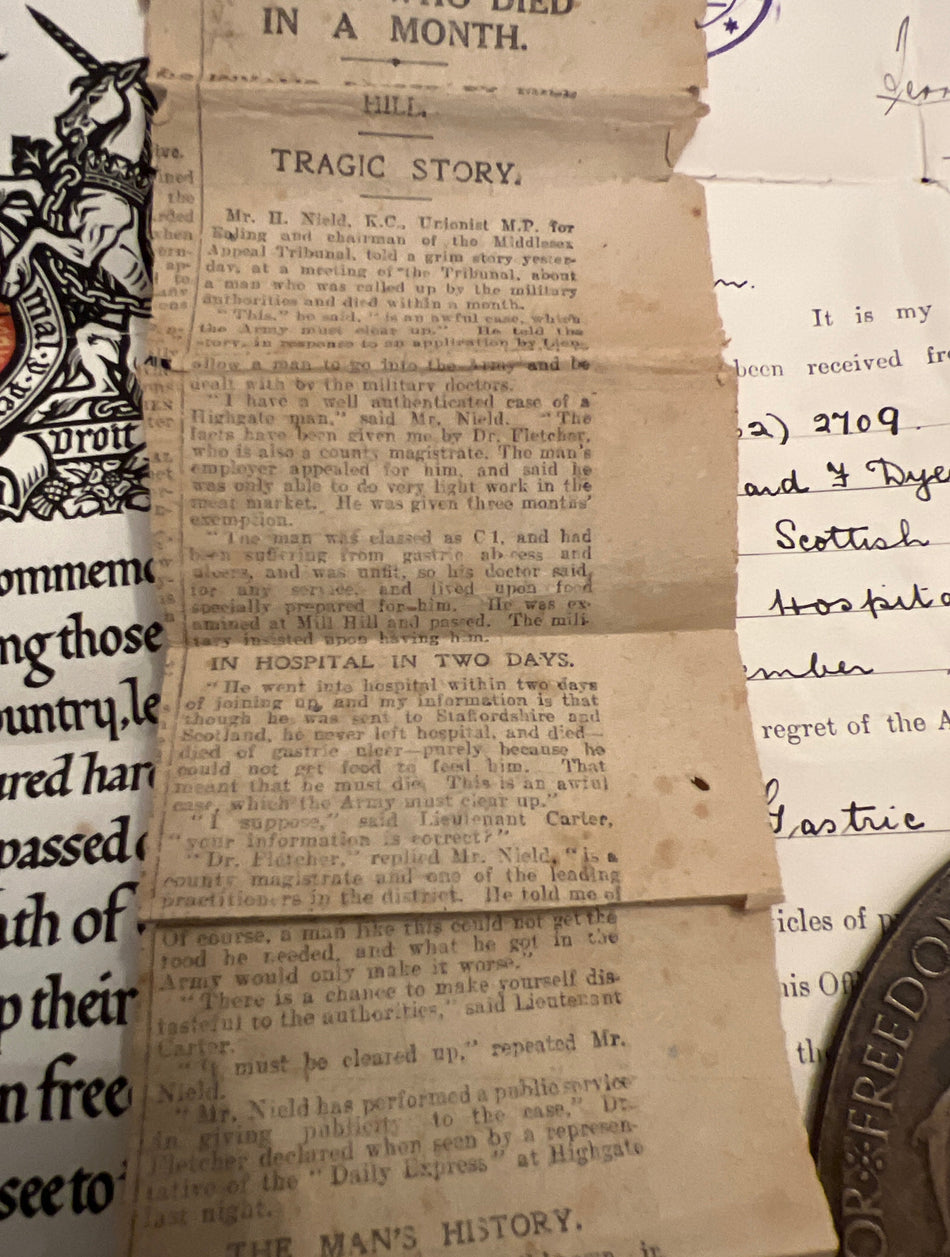 WHO DIED
IN A MONTH.
HILL.
TRAGIC STORY.
Mr. H. Nield, K.C., Unionist M.P. for
Ealing and chairman of the Middlesex
Appeal Tribunal, told a grim story yester-
day, at a meeting of the Tribunal, about
a man who was called up by the military
authorities and died within a month.
"This," he said, "is an awful case, which
the Army must clear up." He told the
story, in response to an application by Lieu-
allow a man to go into the Army and be
dealt with by the military doctors.
"I have a well authenticated case of a
Highgate man," said Mr. Nield. "The
facts have been given me by Dr. Fletcher,
who is also a county magistrate. The man's
employer appealed for him, and said he
was only able to do very light work in the
meat market. He was given three months'
exemption.
"The man was classed as C1, and had
been suffering from gastric abscess and
ulcers, and was unfit, so his doctor said,
for any service, and lived upon food
specially prepared for him. He was ex-
amined at Mill Hill and passed. The mili-
tary insisted upon having him.
IN HOSPITAL IN TWO DAYS.
"He went into hospital within two days
of joining up, and my information is that
though he was sent to Staffordshire and
Scotland, he never left hospital, and died—
died of gastric ulcer—purely because he
could not get food to feed him. That
meant that he must die. This is an awful
case, which the Army must clear up."
"I suppose," said Lieutenant Carter,
"your information is correct?"
"Dr. Fletcher," replied Mr. Nield, "is a
county magistrate and one of the leading
practitioners in the district. He told me of
Of course, a man like this could not get the
food he needed, and what he got in the
Army would only make it worse.
"There is a chance to make yourself dis-
tasteful to the authorities," said Lieutenant
Carter.
"It must be cleared up," repeated Mr.
Nield.
"Mr. Nield has performed a public service
in giving publicity to the case," Dr.
Fletcher declared when seen by a represen-
tative of the "Daily Express" at Highgate
last night.
THE MAN'S HISTORY.
in
mal·y·pe
Droit
ommem
ng those
ountry, le
ured har
passed
ath of
p their
n free
see to
It is my
been received fr
2) 2709.
and F Dye
Scottish
Hospita
mber
regret of the A
Gastric
icles of p
his Off
th
OR FREEDO